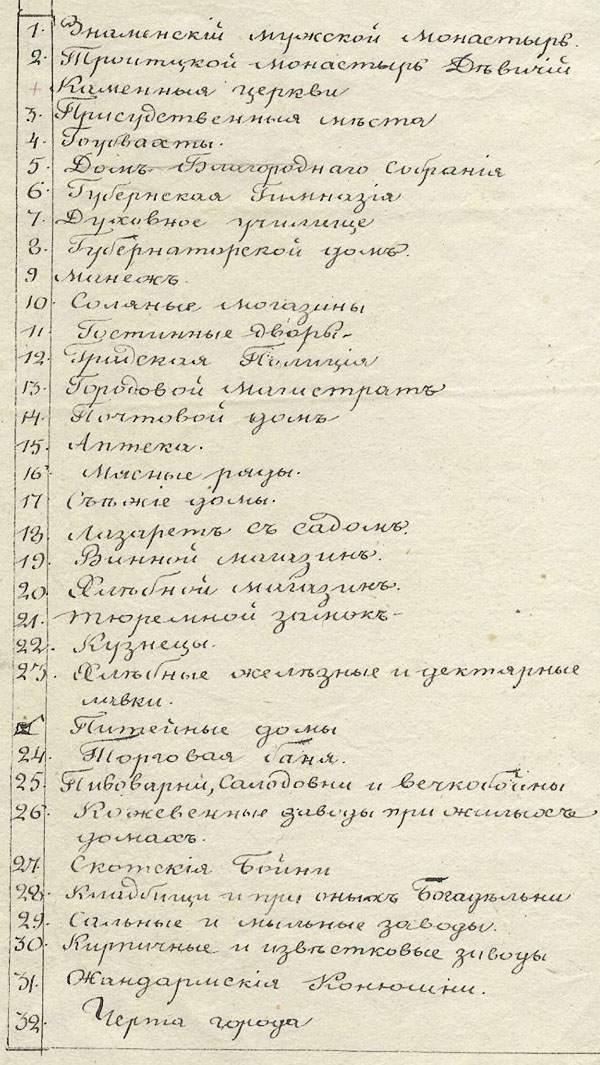 1. Знаменскій мужской монастырь.
2. Троитцкой монастырь Дѣвичій
+ Каменныя церкви
3. Присудственныя мѣста
4. Гоубвахты.
5 Домъ Благороднаго собранія
6. Губернская Гимназія
7. Духовное училище
8. Губернаторской домъ.
9 Манежъ.
10 Соляные могазины
11. Гостинные дворы.
12. Градская Полиція
13. Городовой магистратъ
14 Почтовой домъ
15. Аптека.
16 Мясные ряды.
17 Съѣжіе домы.
18 Лазаретъ съ садомъ.
19. Винной магазинъ.
20. Хлѣбной магазинъ.
21. Тюремной замокъ
22. Кузнецы.
23. Хлѣбные желѣзные и дектярные
лавки.
Питейные домы
24. Торговая баня.
25. Пивоварни, Салодовни и
26. Кожевенные заводы при жилыхъ
домахъ.
27. Скотскія Бойни
28. Кладбищи и при оныхъ Богадѣльни
29. Сальные и мыльные заводы.
30. Кирпичные и извѣстковые заводы
31. Жандармскія Конюшни.
32. Черта города